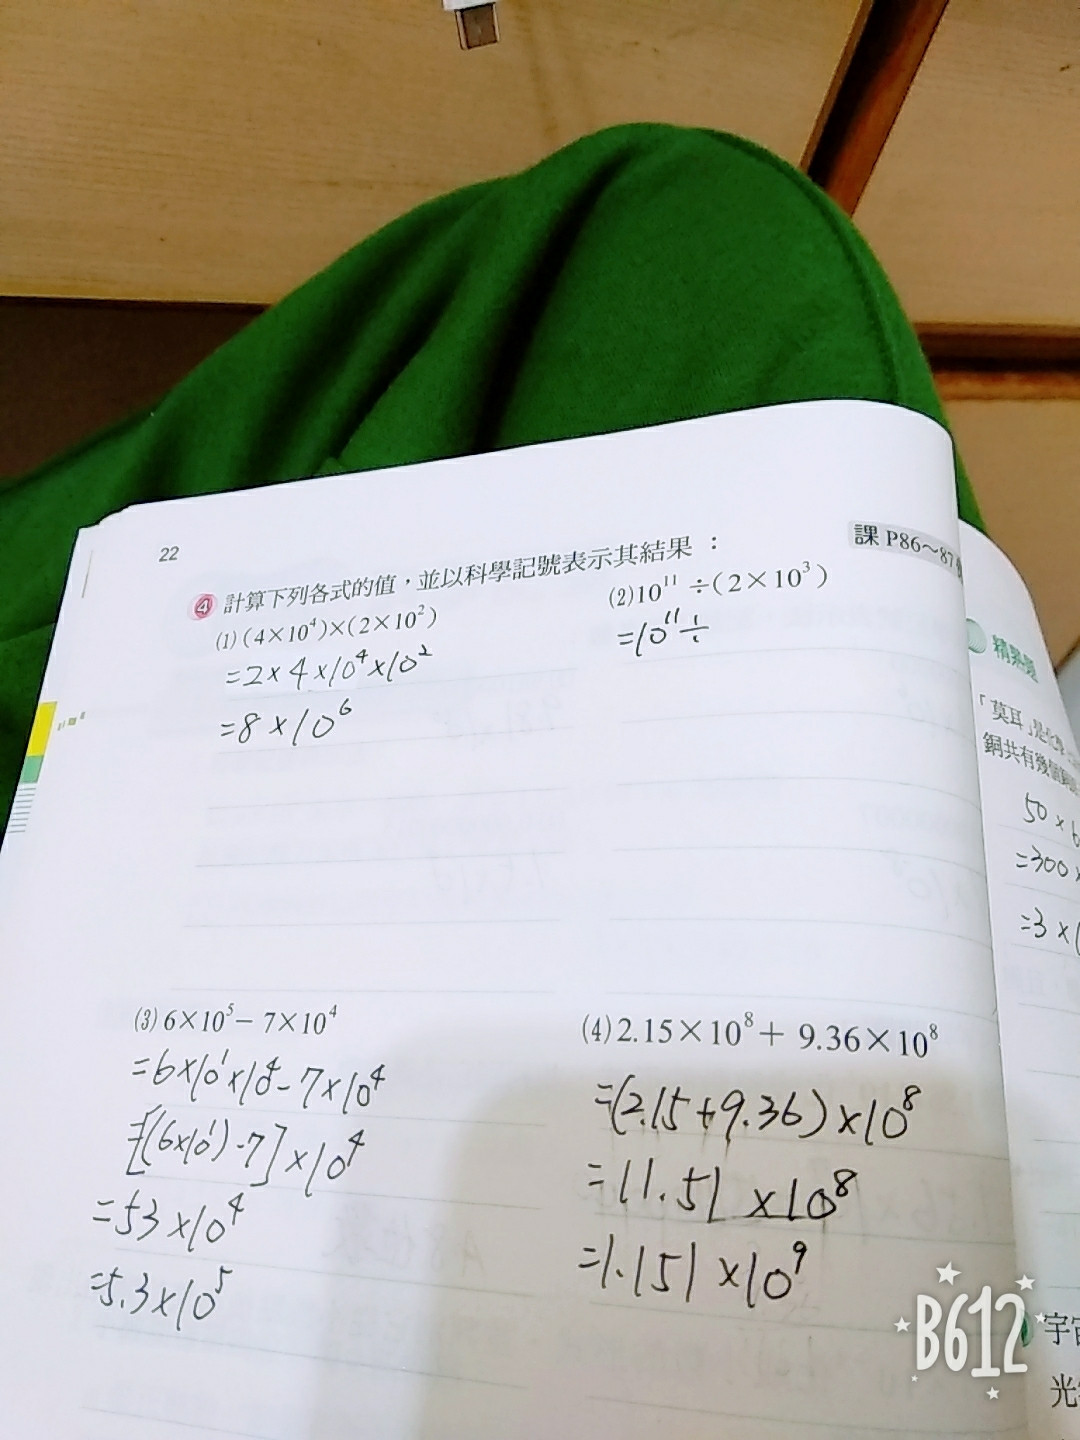 22
課 P86～87
4 計算下列各式的值，並以科學記號表示其結果：
(1) (4×10⁴)×(2×10²)
=2×4×10⁴×10²
=8×10⁶
(2) 10¹¹ ÷(2×10³)
=10¹¹÷
(3) 6×10⁵－7×10⁴
=6×10¹×10⁴-7×10⁴
=[(6×10¹)-7]×10⁴
=53×10⁴
=5.3×10⁵
(4) 2.15×10⁸＋9.36×10⁸
=(2.15+9.36)×10⁸
=11.51×10⁸
=1.151×10⁹
精熟題
「莫耳」是化學
銅共有幾個
50×6
=300×
=3×1
宇宙
光
B612